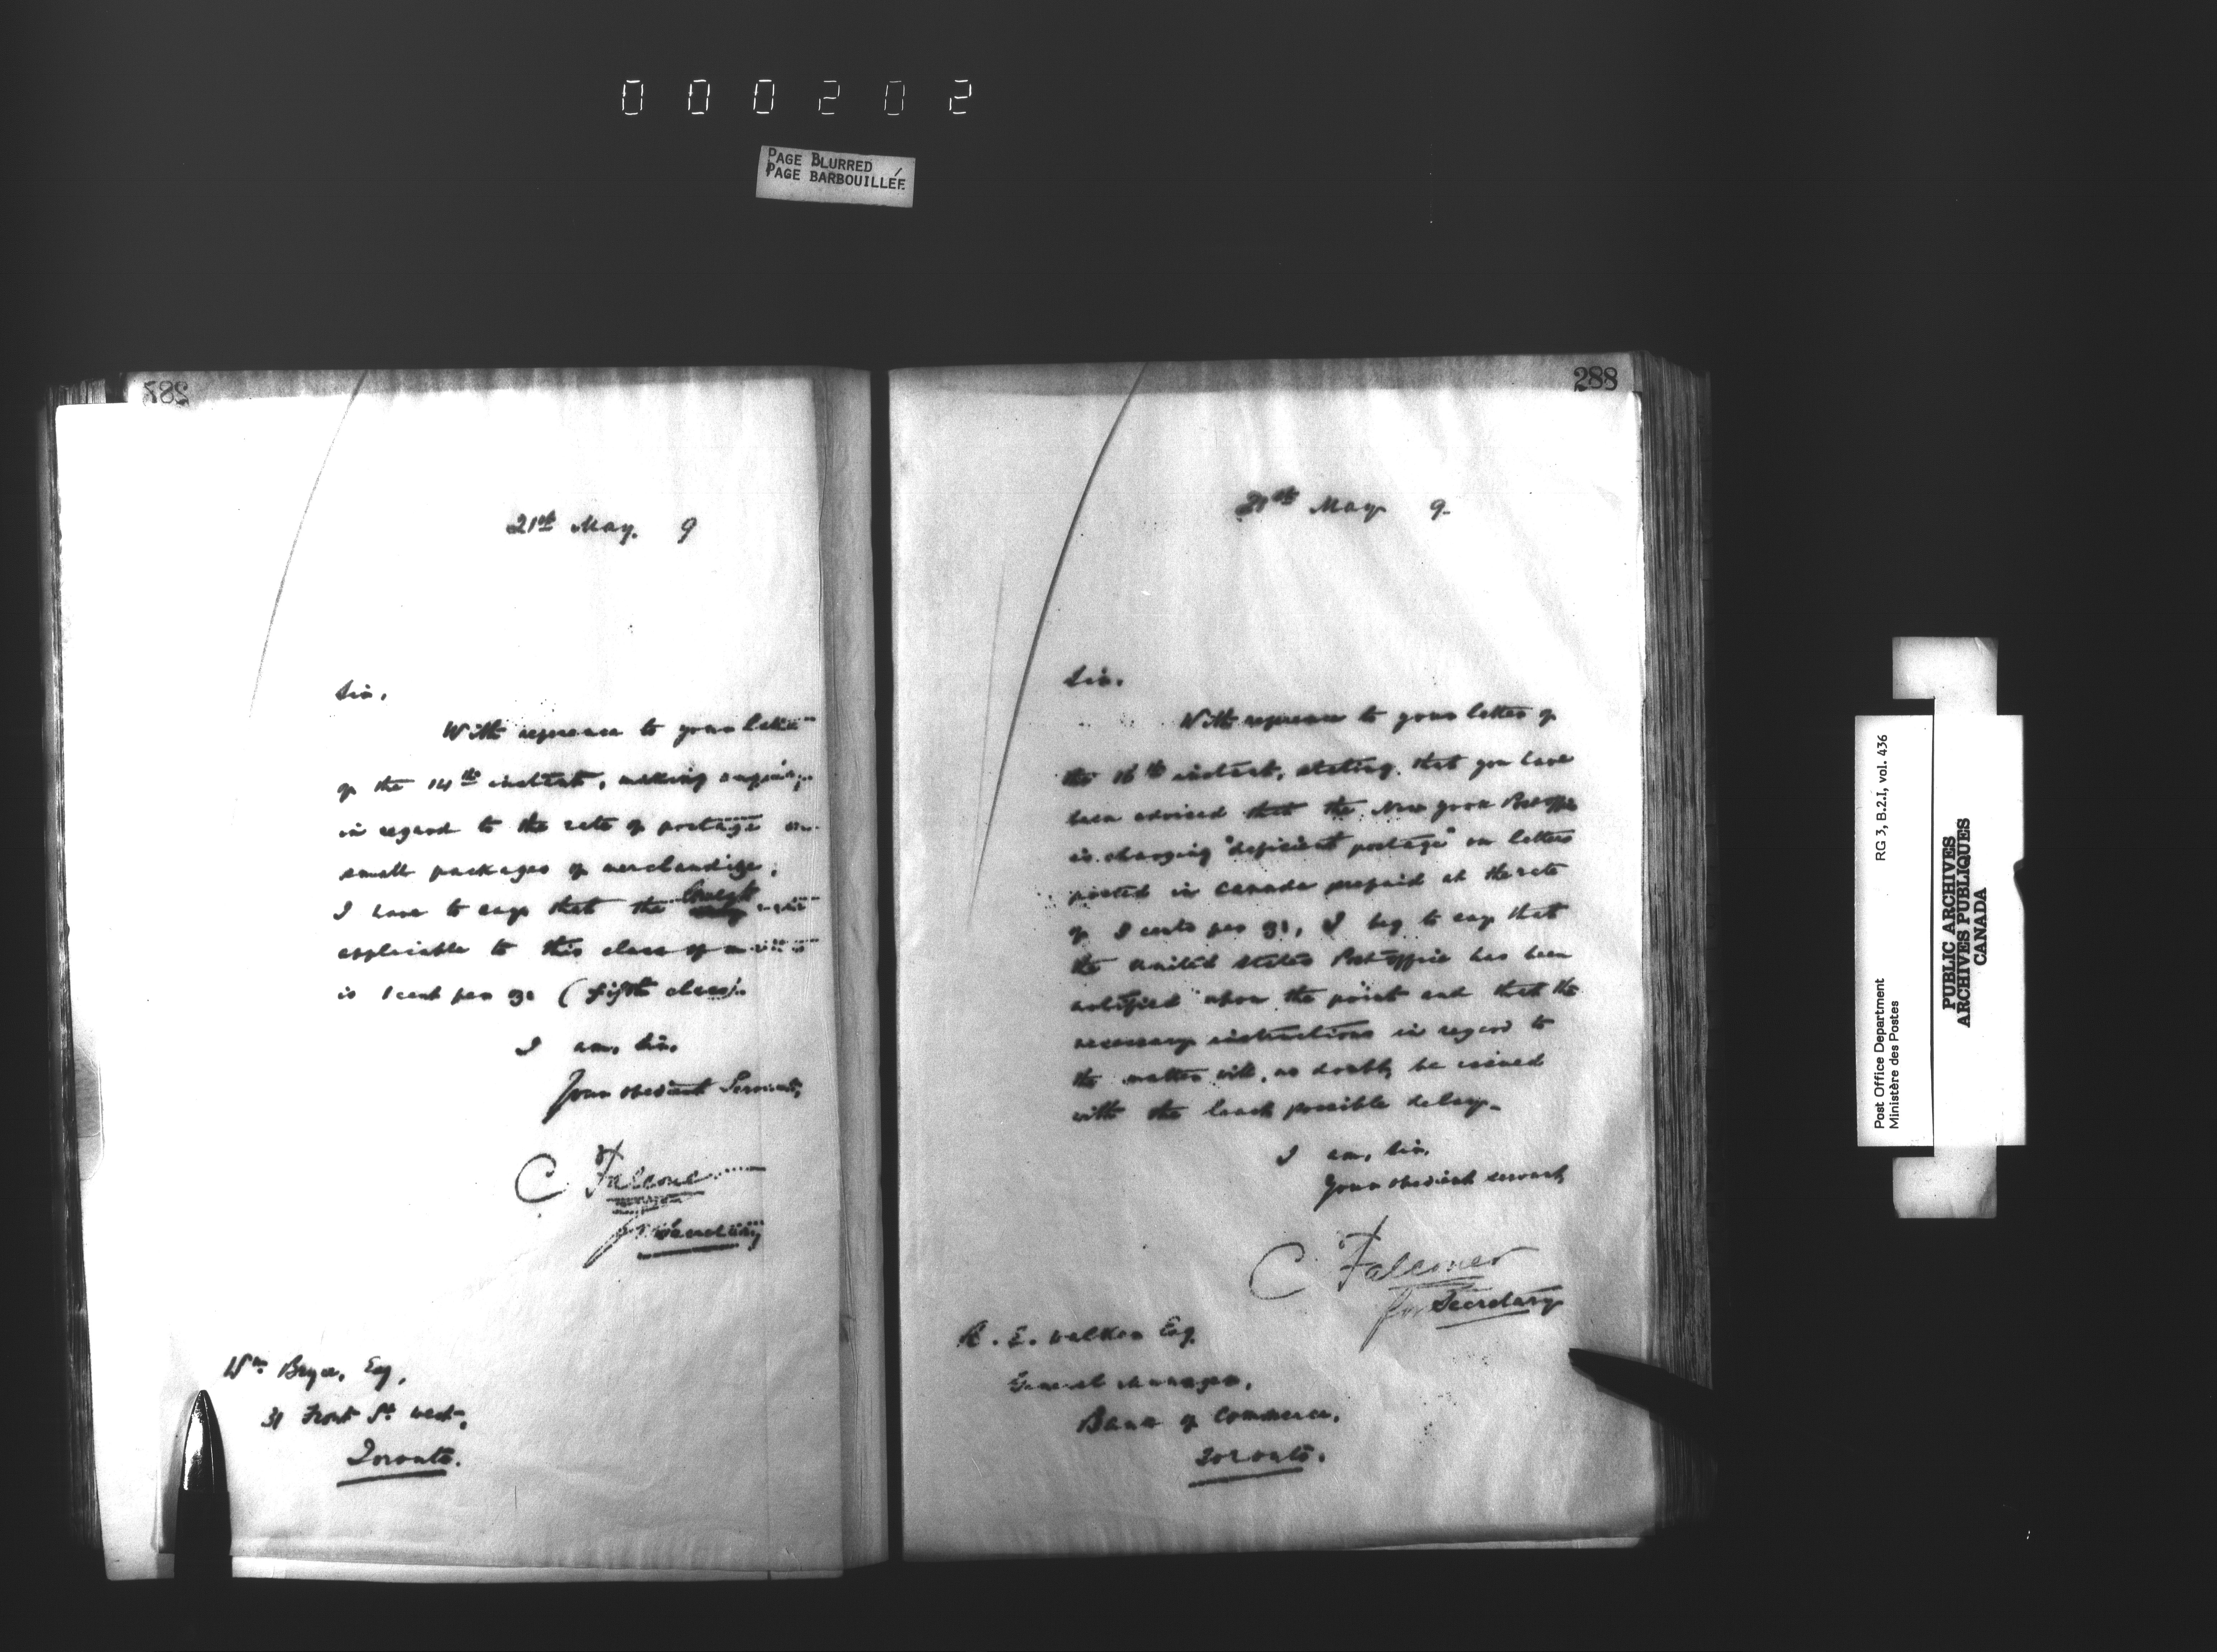 000202
PAGE BLURRED
PAGE BARBOUILLÉE
21st May. 9
Sir,
With reference to your letter
of the 14th instant, making enquiry
in regard to the rate of postage on
small packages of merchandize,
I have to say that the lowest rate
applicable to this class of matter
is 1 cent per oz. (fifth class).
I am, Sir,
Your obedient Servant,
C Falconer
for Secretary
Wm Bryce, Esq,
31 Front St. West,
Toronto.
288
21st May 9.
Sir,
With reference to your letter of
the 16th instant, stating that you have
been advised that the New York Post Office
is charging "deficient postage" on letters
posted in Canada prepaid at the rate
of 3 cents per oz., I beg to say that
the United States Post Office has been
notified upon the point and that the
necessary instructions in regard to
the matter will, no doubt, be issued
with the least possible delay.
I am, Sir,
Your obedient servant,
C Falconer
for Secretary
E. Walker Esq.
General Manager,
Bank of Commerce,
Toronto.
Post Office Department
Ministère des Postes
RG 3, B.2.I, vol. 436
PUBLIC ARCHIVES
ARCHIVES PUBLIQUES
CANADA